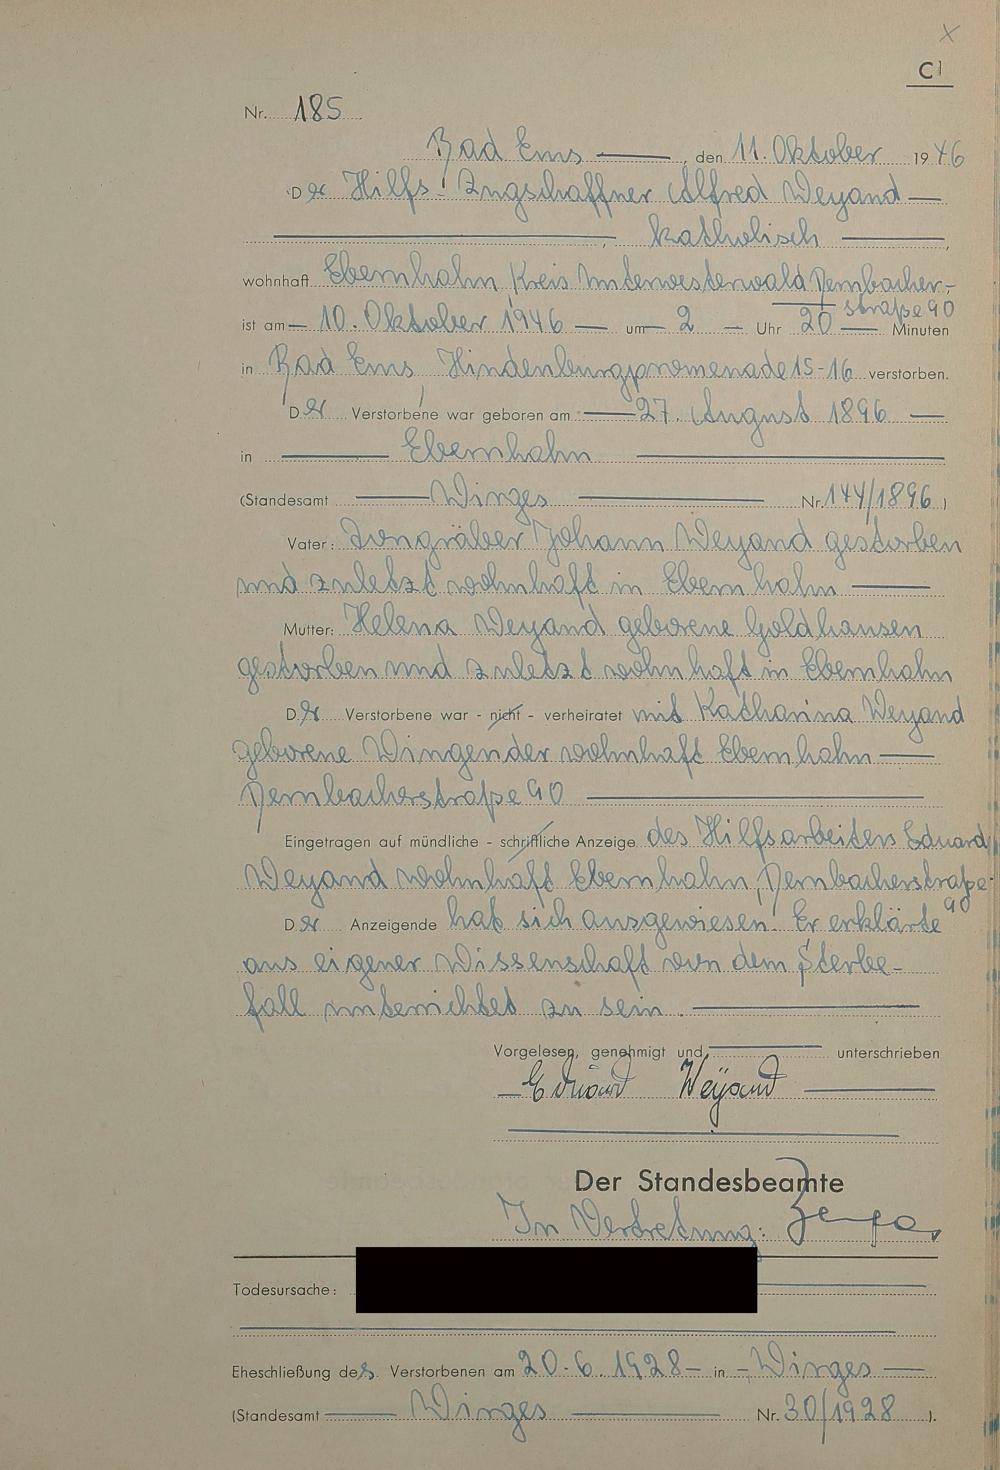 C1
Nr. 185
Bad Ems, den 11. Oktober 1946
Der Hilfs-Zugschaffner Alfred Weyand
katholisch
wohnhaft Ebernhahn, Kreis Unterwesterwald Dernbacher-
straße 90
ist am 10. Oktober 1946 um 2 Uhr 20 Minuten
in Bad Ems, Hindenburgpromenade 15-16 verstorben.
Der Verstorbene war geboren am 27. August 1896
in Ebernhahn
(Standesamt Wirges Nr. 144/1896)
Vater: Tongräber Johann Weyand gestorben
und zuletzt wohnhaft in Ebernhahn
Mutter: Helena Weyand geborene Goldhausen
gestorben und zuletzt wohnhaft in Ebernhahn
Der Verstorbene war - nicht - verheiratet mit Katharina Weyand
geborene Wingender wohnhaft Ebernhahn
Dernbacherstraße 90
Eingetragen auf mündliche - schriftliche Anzeige des Hilfsarbeiters Eduard
Weyand wohnhaft Ebernhahn, Dernbacherstraße
90
Der Anzeigende hat sich ausgewiesen. Er erklärte
aus eigener Wissenschaft von dem Sterbe-
fall unterrichtet zu sein.
Vorgelesen, genehmigt und unterschrieben
Eduard Weyand
Der Standesbeamte
In Vertretung:
Todesursache:
Eheschließung des Verstorbenen am 20.6.1928 in Wirges
(Standesamt Wirges Nr. 30/1928).